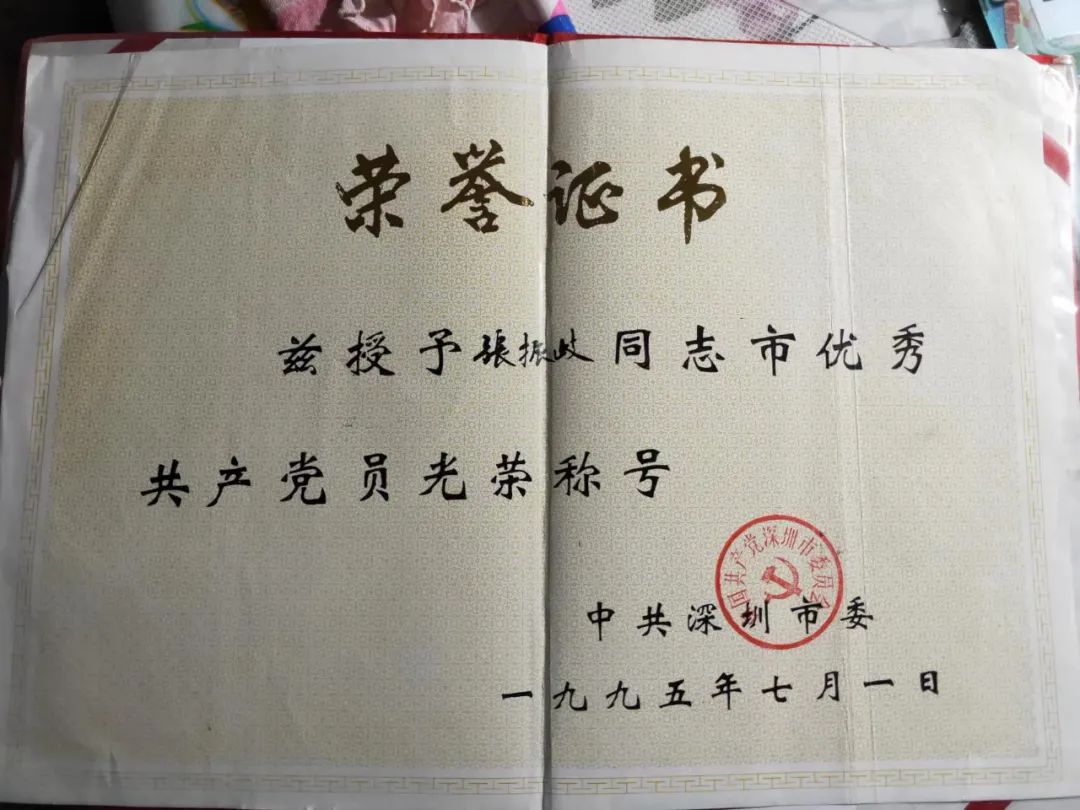 荣誉证书
兹授予张振岐同志市优秀
共产党员光荣称号
中国共产党深圳市委员会
中共深圳市委
一九九五年七月一日